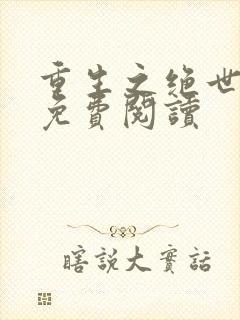 重生之绝世
免費閱讀
瞎説大實話